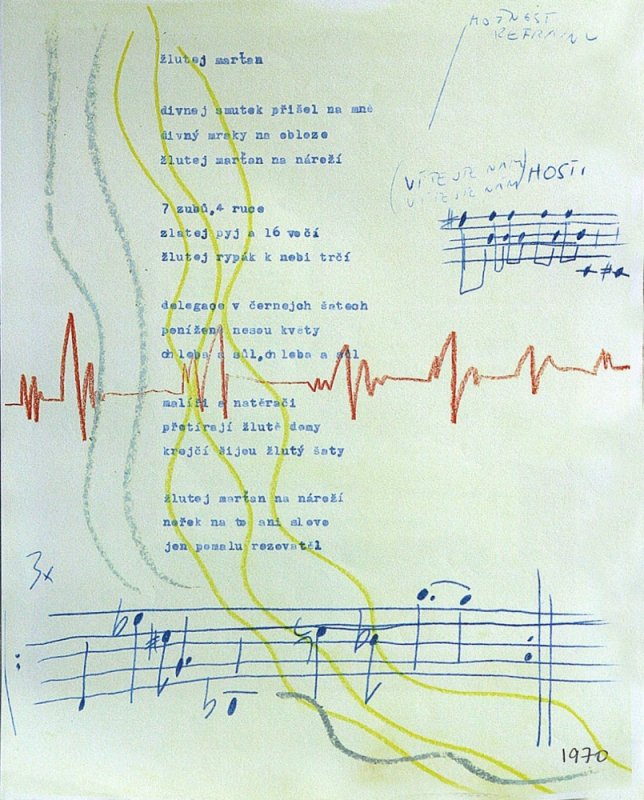 MOŽNOST
REFRAINU
žlutej marťan
divnej smutek přišel na mně
divný mraky na obloze
žlutej marťan na nároží
(VÍTEJTE NÁM) HOSTI
VÍTEJTE NÁM
7 zubů,4 ruce
zlatej pyj a 16 vočí
žlutej rypák k nebi trčí
delegace v černejch šatech
poníženě nesou květy
chleba a sůl,chleba a sůl
malíři a natěrači
přetírají žlutě domy
krejčí šijou žlutý šaty
žlutej marťan na nároží
neřek na to ani slovo
jen pomalu rezovatěl
3x
1970